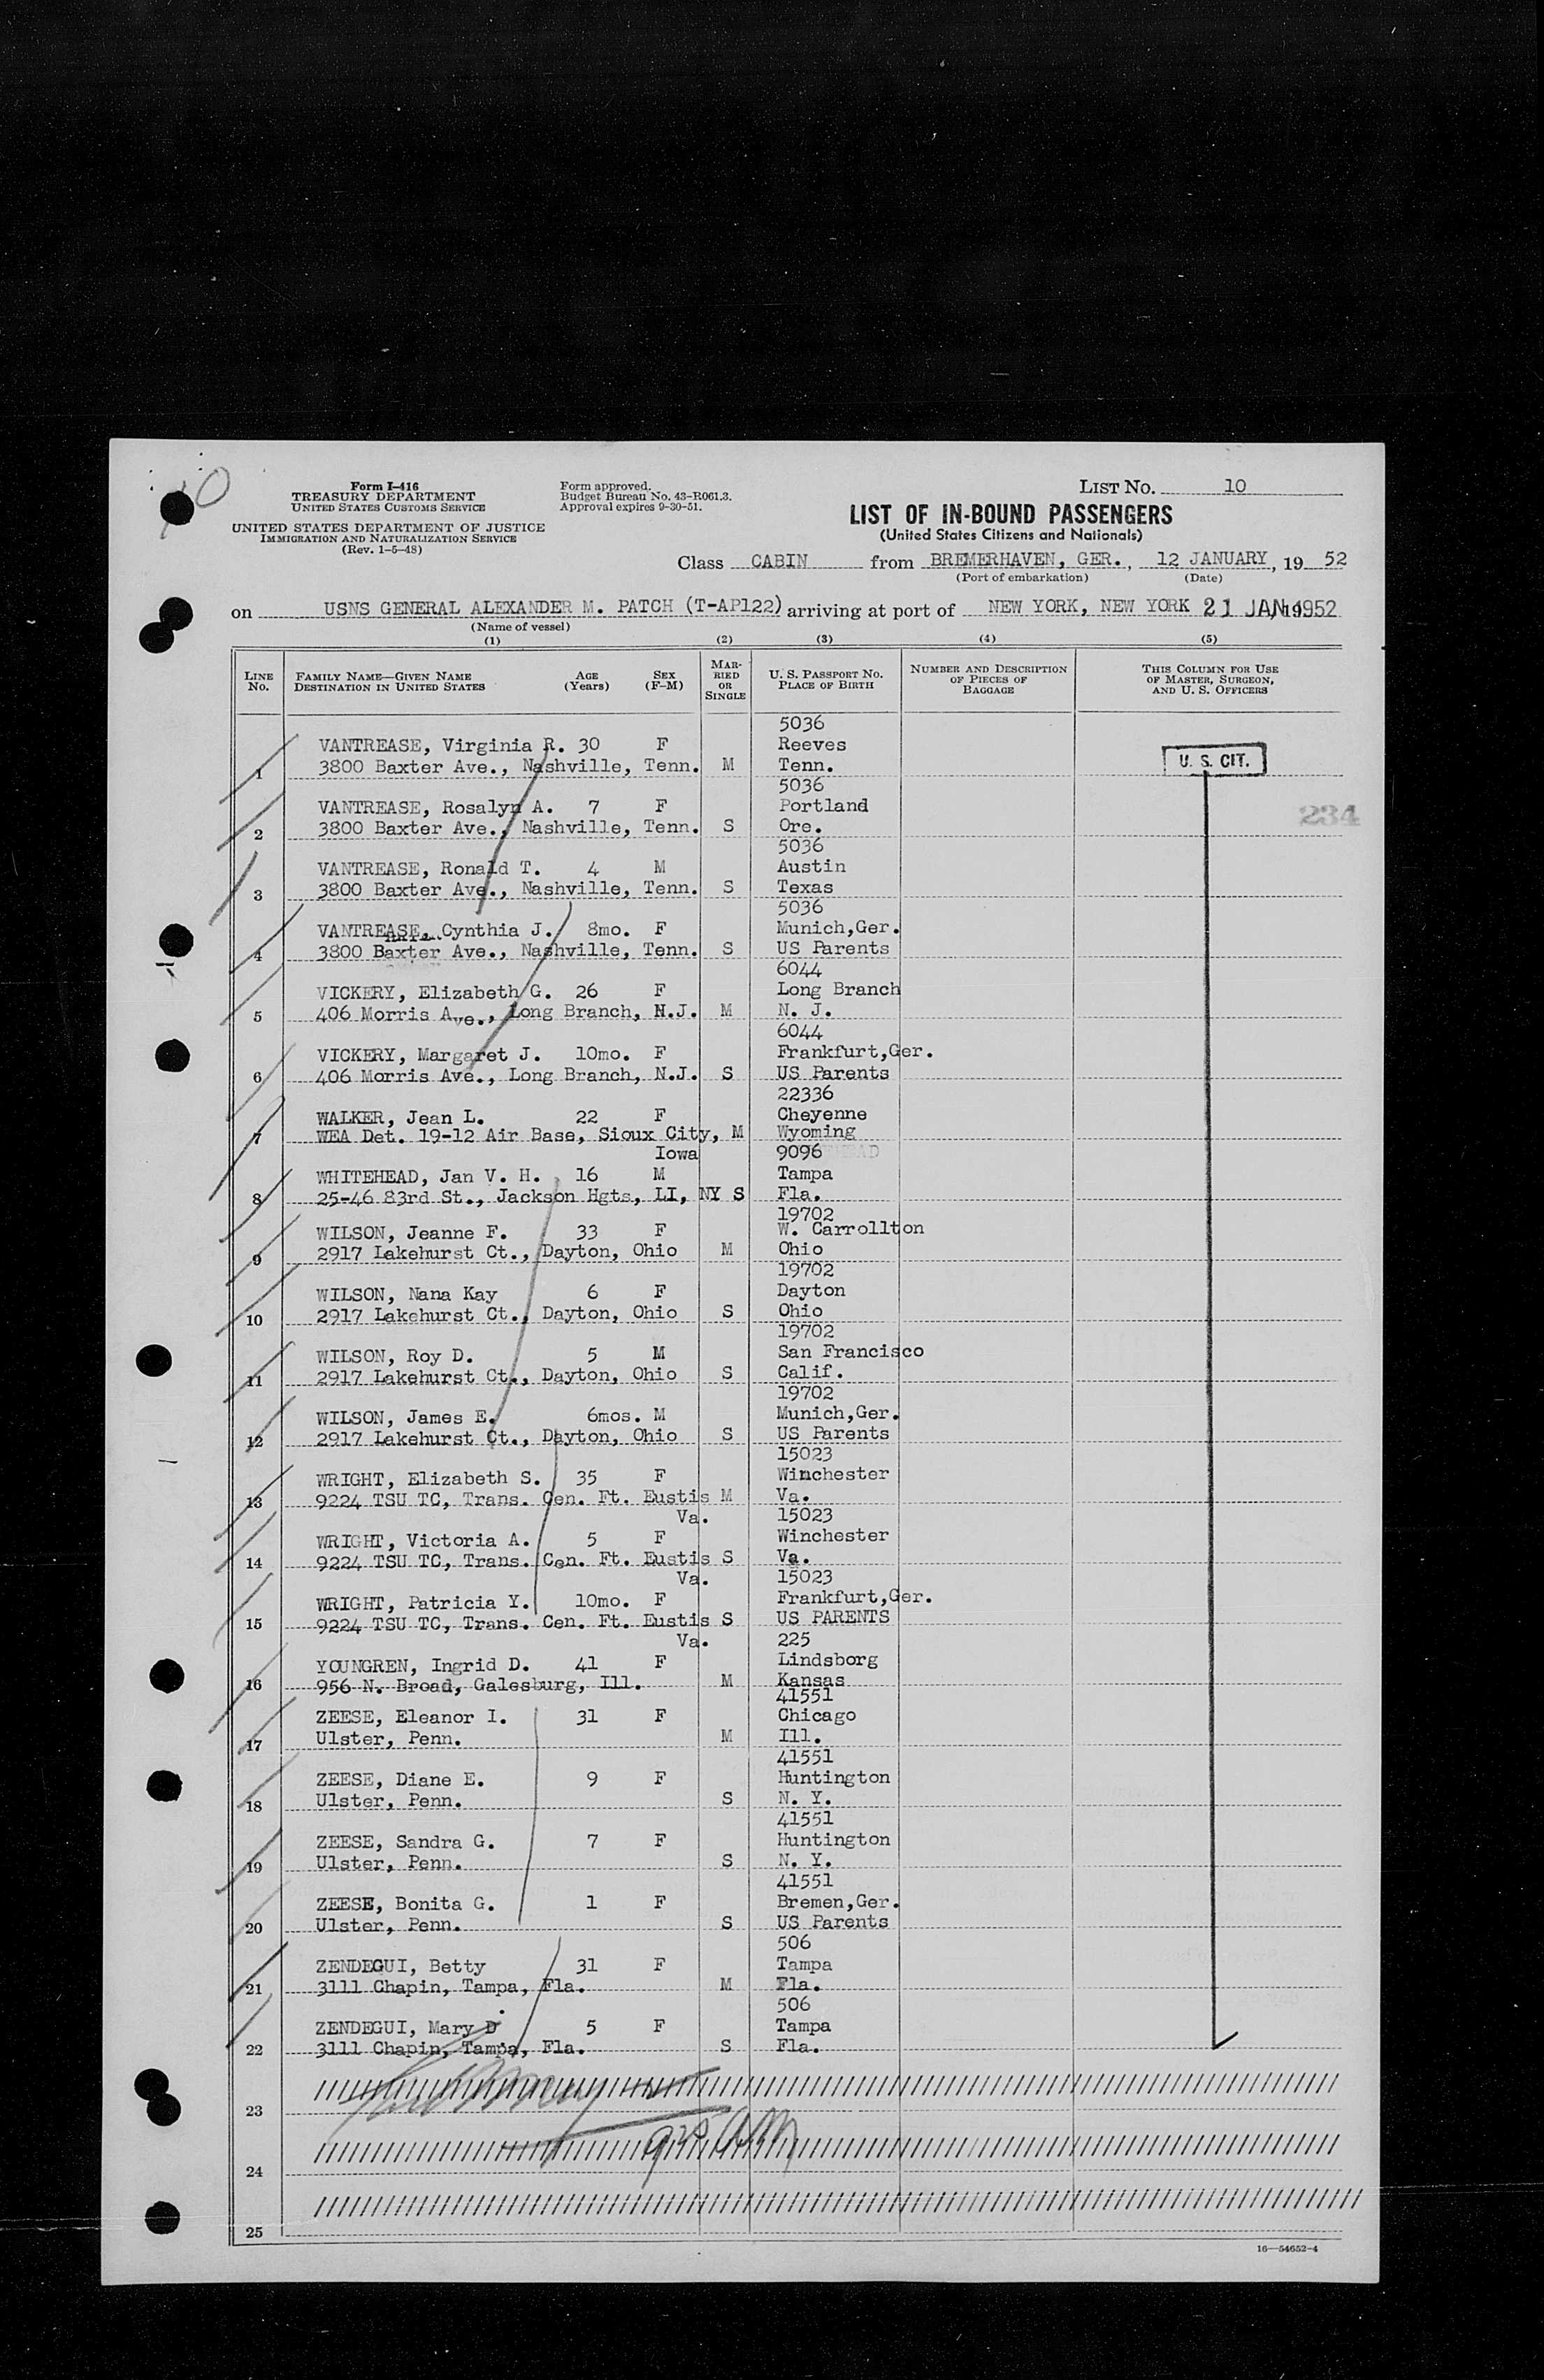 Form I-416
TREASURY DEPARTMENT
UNITED STATES CUSTOMS SERVICE
UNITED STATES DEPARTMENT OF JUSTICE
IMMIGRATION AND NATURALIZATION SERVICE
(Rev. 1-5-48)
Form approved.
Budget Bureau No. 43-R061.3.
Approval expires 9-30-51.
LIST NO. 10
LIST OF IN-BOUND PASSENGERS
(United States Citizens and Nationals)
Class CABIN from BREMERHAVEN, GER., 12 JANUARY, 19 52
(Port of embarkation) (Date)
on USNS GENERAL ALEXANDER M. PATCH (T-AP122) arriving at port of NEW YORK, NEW YORK 21 JAN 1952
(Name of vessel)
(1) (2) (3) (4) (5)
LINE NO. FAMILY NAME—GIVEN NAME DESTINATION IN UNITED STATES AGE (Years) SEX (F-M) MARRIED OR SINGLE U. S. PASSPORT NO. PLACE OF BIRTH NUMBER AND DESCRIPTION OF PIECES OF BAGGAGE THIS COLUMN FOR USE OF MASTER, SURGEON, AND U. S. OFFICERS
5036
VANTREASE, Virginia R. 30 F Reeves
1 3800 Baxter Ave., Nashville, Tenn. M Tenn. U. S. CIT.
5036
VANTREASE, Rosalyn A. 7 F Portland 234
2 3800 Baxter Ave., Nashville, Tenn. S Ore.
5036
VANTREASE, Ronald T. 4 M Austin
3 3800 Baxter Ave., Nashville, Tenn. S Texas
5036
VANTREASE, Cynthia J. 8mo. F Munich,Ger.
4 3800 Baxter Ave., Nashville, Tenn. S US Parents
6044
VICKERY, Elizabeth G. 26 F Long Branch
5 406 Morris Ave., Long Branch, N.J. M N. J.
6044
VICKERY, Margaret J. 10mo. F Frankfurt,Ger.
6 406 Morris Ave., Long Branch, N.J. S US Parents
22336
WALKER, Jean L. 22 F Cheyenne
7 WEA Det. 19-12 Air Base, Sioux City, M Wyoming
Iowa 9096
WHITEHEAD, Jan V. H. 16 M Tampa
8 25-46 83rd St., Jackson Hgts, LI, NY S Fla.
19702
WILSON, Jeanne F. 33 F W. Carrollton
9 2917 Lakehurst Ct., Dayton, Ohio M Ohio
19702
WILSON, Nana Kay 6 F Dayton
10 2917 Lakehurst Ct., Dayton, Ohio S Ohio
19702
WILSON, Roy D. 5 M San Francisco
11 2917 Lakehurst Ct., Dayton, Ohio S Calif.
19702
WILSON, James E. 6mos. M Munich,Ger.
12 2917 Lakehurst Ct., Dayton, Ohio S US Parents
15023
WRIGHT, Elizabeth S. 35 F Winchester
13 9224 TSU TC, Trans. Cen. Ft. Eustis M Va.
Va. 15023
WRIGHT, Victoria A. 5 F Winchester
14 9224 TSU TC, Trans. Cen. Ft. Eustis S Va.
Va. 15023
WRIGHT, Patricia Y. 10mo. F Frankfurt,Ger.
15 9224 TSU TC, Trans. Cen. Ft. Eustis S US PARENTS
Va. 225
YOUNGREN, Ingrid D. 41 F Lindsborg
16 956 N. Broad, Galesburg, Ill. M Kansas
41551
ZEESE, Eleanor I. 31 F Chicago
17 Ulster, Penn. M Ill.
41551
ZEESE, Diane E. 9 F Huntington
18 Ulster, Penn. S N. Y.
41551
ZEESE, Sandra G. 7 F Huntington
19 Ulster, Penn. S N. Y.
41551
ZEESE, Bonita G. 1 F Bremen,Ger.
20 Ulster, Penn. S US Parents
506
ZENDEGUI, Betty 31 F Tampa
21 3111 Chapin, Tampa, Fla. M Fla.
506
ZENDEGUI, Mary D. 5 F Tampa
22 3111 Chapin, Tampa, Fla. S Fla.
23
24
25
16—54652-4